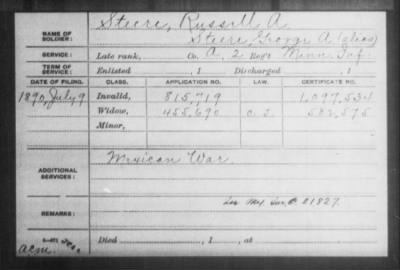 Steere, Russell A.
NAME OF SOLDIER: Steere, George A. (alias)
SERVICE: Late rank, Co. A, 2 Reg't Minn. Inf.
TERM OF SERVICE: Enlisted , 1 Discharged , 1
DATE OF FILING. CLASS. APPLICATION NO. LAW. CERTIFICATE NO.
1890, July 9 Invalid, 815,719 1,097,534
Widow, 455,690 502,575
Minor,
ADDITIONAL SERVICES: Mexican War
See Mex. Sur. 21827
REMARKS:
Died , 1 , at